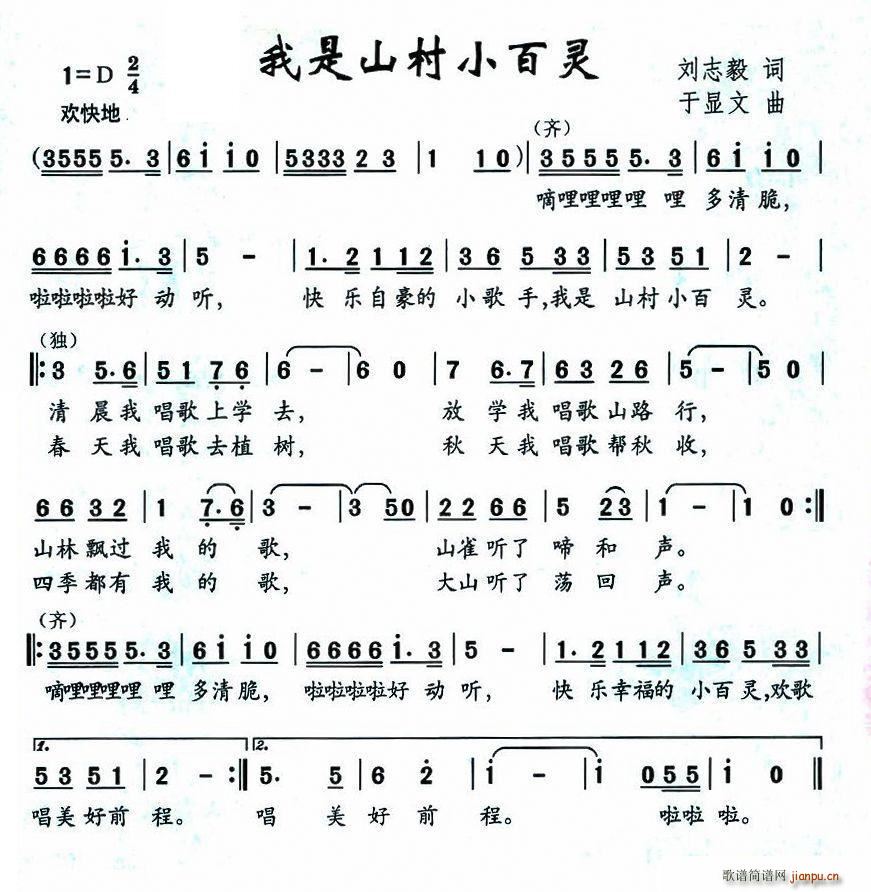 我是山村小百灵
1=D 2/4
刘志毅 词
欢快地
于显文 曲
(齐)
(3555 5. 3 | 6 i i 0 | 5333 2 3 | 1 1 0) | 3 5 5 5 5. 3 | 6 i i 0 |
嘀哩哩哩哩 哩 多清脆,
6 6 6 6 i. 3 | 5 - | 1. 2 1 12 | 3 6 5 33 | 5 3 5 1 | 2 - |
啦啦啦啦好 动 听, 快 乐自豪的 小歌 手,我是 山村小百 灵。
(独)
|: 3 5. 6 | 5 1 7 6 | 6 - | 6 0 | 7 6. 7 | 6 3 2 6 | 5 - | 5 0 |
清 晨我 唱歌上学 去, 放 学我 唱歌山路 行,
春 天我 唱歌去植 树, 秋 天我 唱歌帮秋 收,
6 6 3 2 | 1 7. 6 | 3 - | 3 5 0 | 2 2 6 6 | 5 2 3 | 1 - | 1 0 :|
山林飘过 我 的 歌, 山雀听了 啼 和 声。
四季都有 我 的 歌, 大山听了 荡 回 声。
(齐)
|: 3 5 5 5 5. 3 | 6 i i 0 | 6 6 6 6 i. 3 | 5 - | 1. 2 1 12 | 3 6 5 33 |
嘀哩哩哩哩 哩 多清脆, 啦啦啦啦好 动 听, 快 乐幸福的 小百 灵,欢歌
1. 2.
5 3 5 1 | 2 - :| 5. 5 | 6 2 | i - | i 0 5 5 | i 0 ||
唱美好前 程。 唱 美 好 前 程。 啦啦 啦。
歌谱简谱网
jianpu.cn